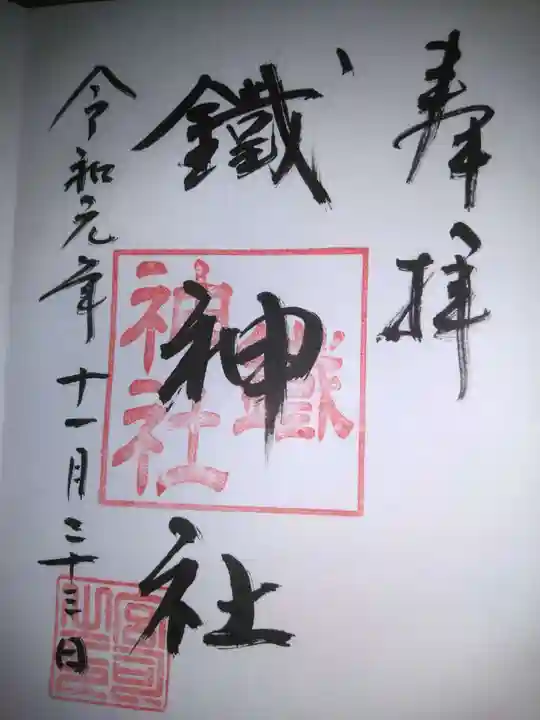 奉拝
鐵神社
鐵
神社
令和元年十一月二十三日
宮司之印